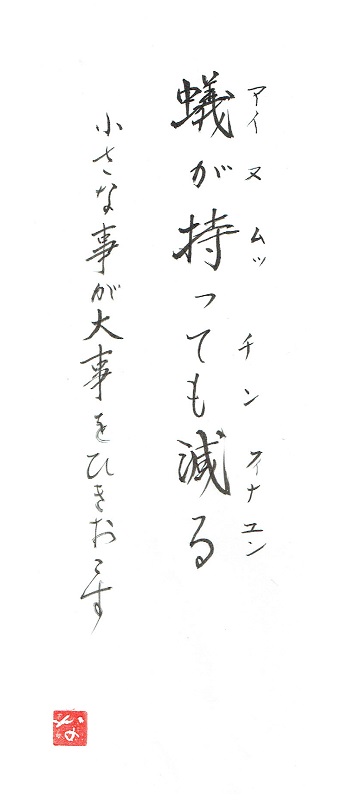 アイヌ ムッチン フィナユン
蟻が持っても減る
小さな事が大事をひきおこす
かお